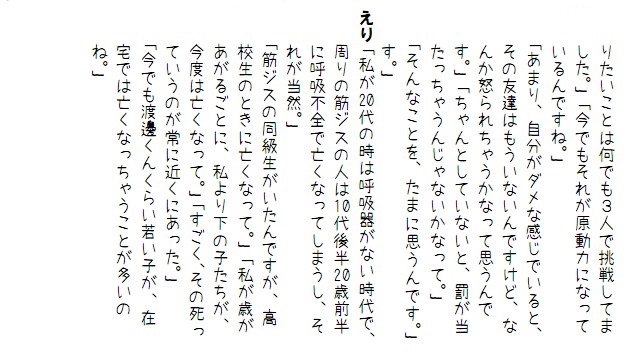 りたいことは何でも３人で挑戦してま
した。」「今でもそれが原動力になって
いるんですね。」
「あまり、自分がダメな感じでいると、
その友達はもういないんですけど、な
んか怒られちゃうかなって思うんで
す。」「ちゃんとしていないと、罰が当
たっちゃうんじゃないかなって。」
「そんなことを、たまに思うんです。」
す。」
えり
「私が20代の時は呼吸器がない時代で、
周りの筋ジスの人は10代後半20歳前半
に呼吸不全で亡くなってしまうし、そ
れが当然。」
「筋ジスの同級生がいたんですが、高
校生のときに亡くなって。」「私が歳が
あがるごとに、私より下の子たちが、
今度は亡くなって。」「すごく、その死っ
ていうのが常に近くにあった。」
「今でも渡邊くんくらい若い子が、在
宅では亡くなっちゃうことが多いの
ね。」